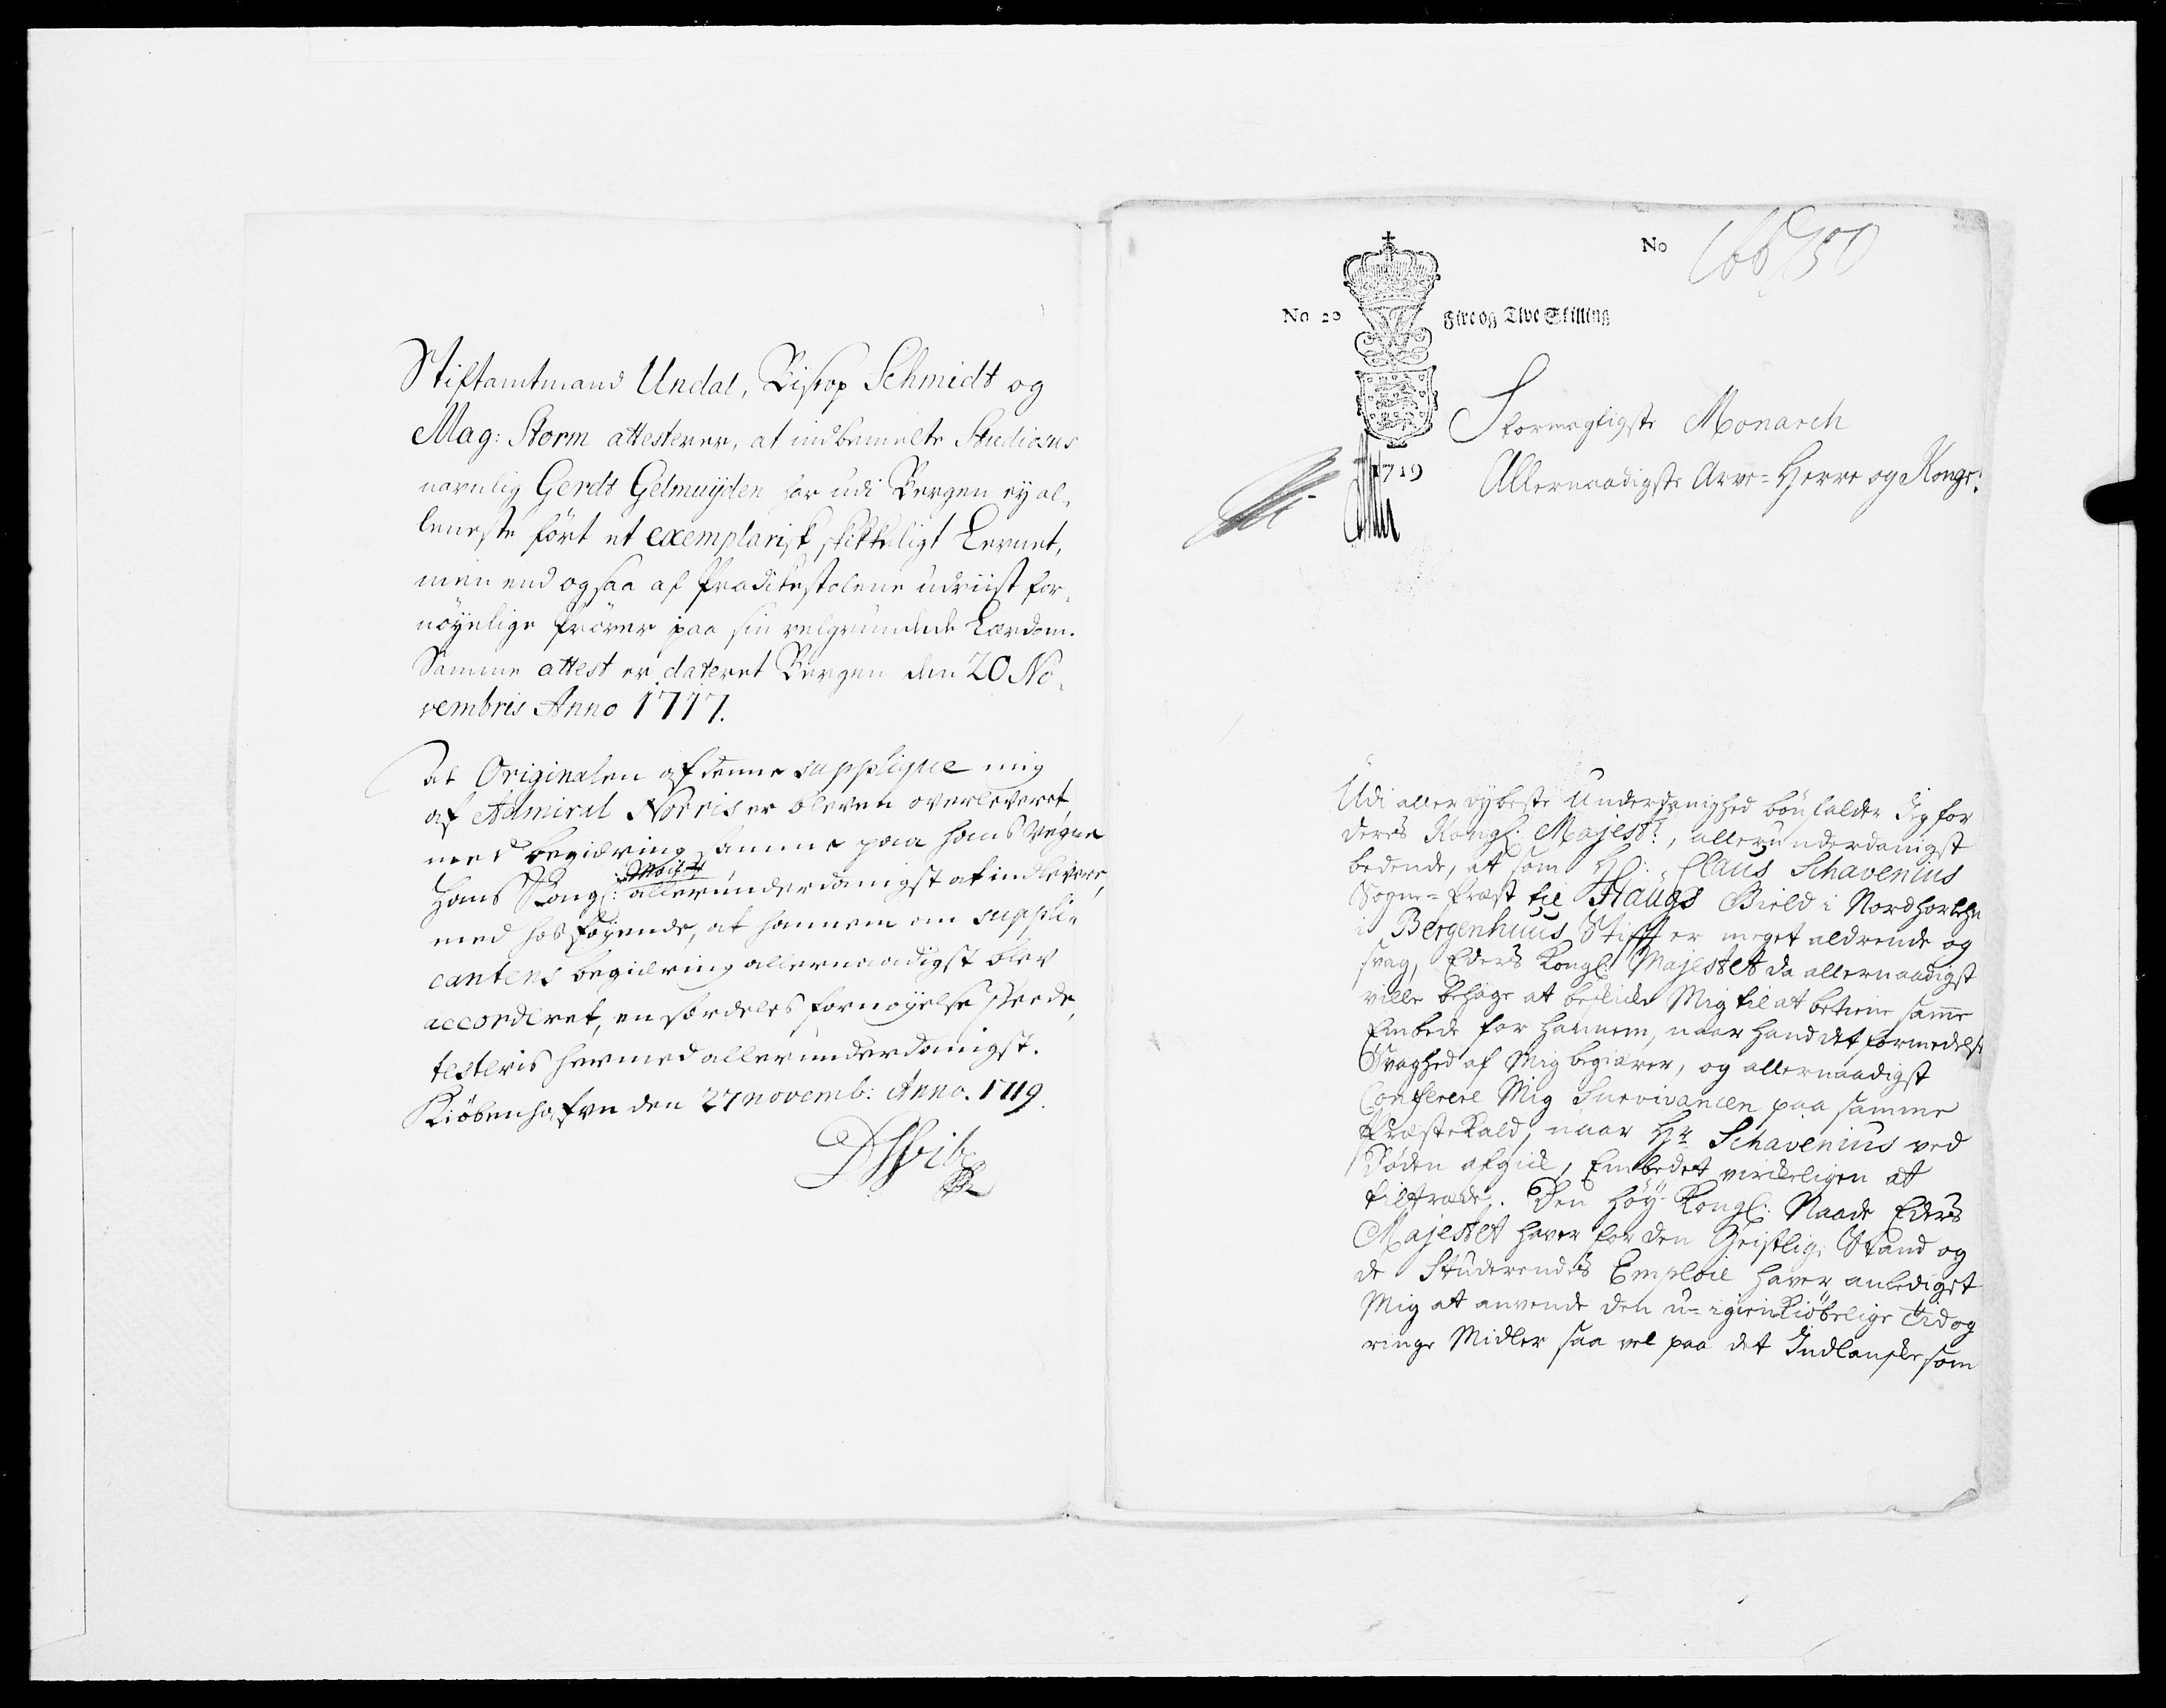 Stiftamtmand Undal, Biskop Schmidt og
Mag: Storm attesterer, at indbemelte Studiosus
navnlig Gerdt Gelmuyden har udi Bergen ey al-
leneste ført et exemplarisk skikkeligt Levnet,
men end ogsaa af Prædikestolene udviist for-
nöyelige Pröver paa sin velgrundede Lærdom.
Samme attest er dateret Bergen den 20 No-
vembris Anno 1717.
At Originalen af denne supplique mig
af Admiral Norris er bleven overleveret
med begiæring samme paa hans Vegne
Hans Kongl: Mayst allerunderdanigst at indlevere,
med hosföyende, at hannem om suppli-
cantens begiæring allernaadigst blev
accorderet, en særdeles fornöyelse skeede,
testeris hermed allerunderdanigst.
Kiöbenhafvn den 27 novemb: Anno. 1719.
No
No 20
Fire og Tive Skilling
1719
Stormægtigste Monarch
Allernaadigste Arve-Herre og Konge!
Udi allerdybeste Underdanighed bönfalder Jeg for
deres Kongl: Majest:, allerunderdanigst
bedende, at som Hr: Claus Schavenius
Sogne-Præst til Haugs Gield i Nordhorlehn
i Bergenhuus Stifft er meget aldrende og
svag, Eders Kongl: Majestet da allernaadigst
ville behage at beskicke Mig til at betiene samme
Embede for hannem, naar hand det formedelst
Svaghed af Mig begiærer, og allernaadigst
Conferere Mig Survivancen paa samme
Præstekald, naar Hr Schavenius ved
Döden afgick, Embedet virckeligen at
tiltræde. Den höy-Kongl: Naade Eders
Majestet haver for den Geistlige Stand og
de Studerendes Emploie haver anlediget
Mig at anvende den u-igienkiöbelige tid og
ringe Midler saa vel paa det Indlanske som